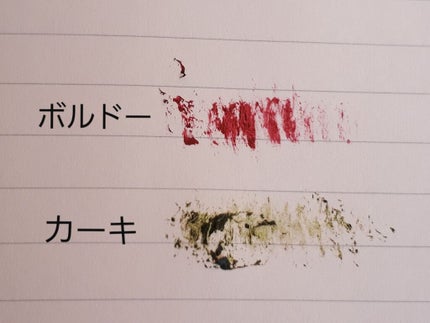 ボルドー
カーキ